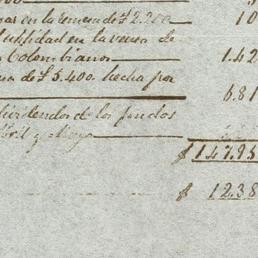 en la remesa de £ 2.200 10
utilidad en la venta de
Colombianos 1.42
de £ 5.400. hecha por
6.81
dividendos de los fondos
Abril y Mayo
$ 147.95
$ 12.38